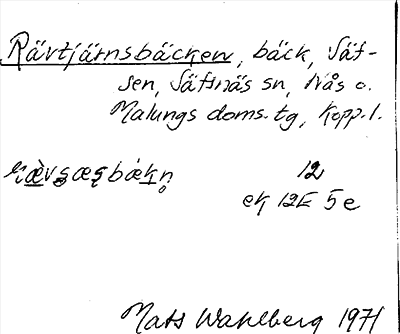 Rävtjärnsbäcken, bäck, Säf-
sen, Säfsnäs sn, Nås o.
Malungs doms. tg, Kopp. l.
12
ek 12E 5e
Mats Wahlberg 1971